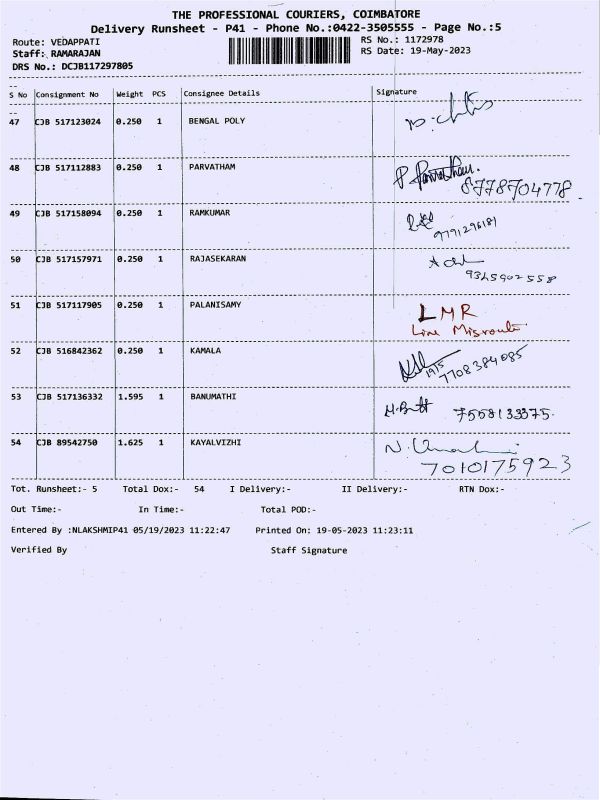 THE PROFESSIONAL COURIERS, COIMBATORE
Delivery Runsheet - P41 - Phone No.:0422-3505555 - Page No.:5
Route: VEDAPPATI RS No.: 1172978
Staff: RAMARAJAN RS Date: 19-May-2023
DRS No.: DCJB117297805
S No Consignment No Weight PCS Consignee Details Signature
47 CJB 517123024 0.250 1 BENGAL POLY
48 CJB 517112883 0.250 1 PARVATHAM P Parvatham.
8778704778
49 CJB 517158094 0.250 1 RAMKUMAR
9791296181
50 CJB 517157971 0.250 1 RAJASEKARAN
9345902558
51 CJB 517117905 0.250 1 PALANISAMY LMR
Line Misroute
52 CJB 516842362 0.250 1 KAMALA
19/5 7708384085
53 CJB 517136332 1.595 1 BANUMATHI 7558133375.
54 CJB 89542750 1.625 1 KAYALVIZHI
7010175923
Tot. Runsheet:- 5 Total Dox:- 54 I Delivery:- II Delivery:- RTN Dox:-
Out Time:- In Time:- Total POD:-
Entered By :NLAKSHMIP41 05/19/2023 11:22:47 Printed On: 19-05-2023 11:23:11
Verified By Staff Signature